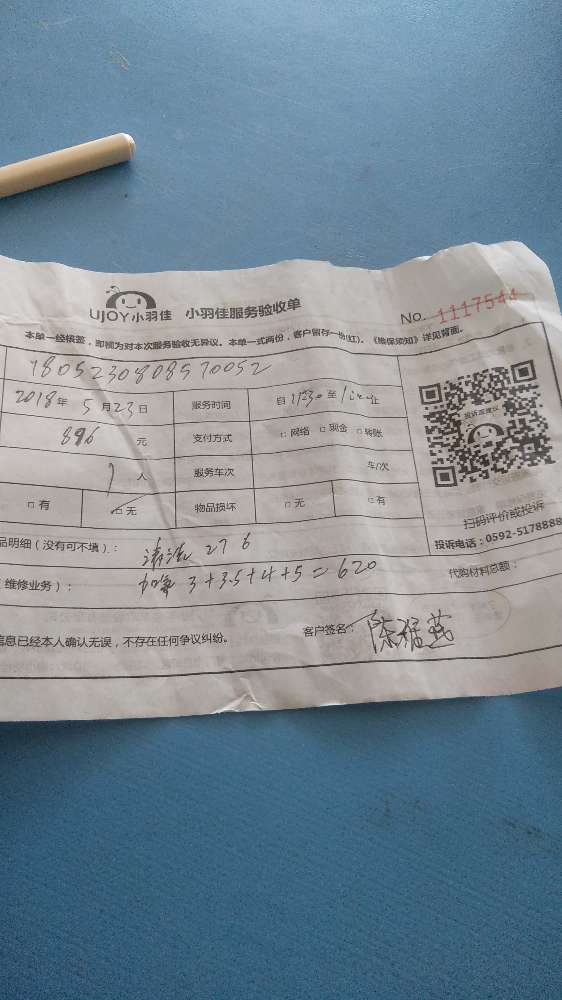 UJOY小羽佳 小羽佳服务验收单
No. 1117544
本单一经核签，即视为对本次服务验收无异议。本单一式两份，客户留存一份(红)。《维保须知》详见背面。
1805230808570052
2018年 5月23日 服务时间 自 11:30 至 止
896 元 支付方式 □ 网络 □ 现金 □ 转账
1 人 服务车次 车/次
□ 有 □ 无 物品损坏 □ 无 □ 有
投诉或建议
扫码评价或投诉
投诉电话：0592-5178888
品明细（没有可不填）： 清洗 276
维修业务）： 3+3.5+4+5=620 代购材料总额：
信息已经本人确认无误，不存在任何争议纠纷。 客户签名： 陈